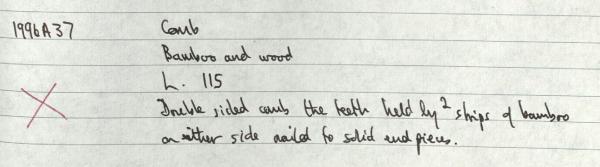 1996A37 Comb
Bamboo and wood
L. 115
Double sided comb the teeth held by 2 strips of bamboo
on either side nailed to solid end pieces.